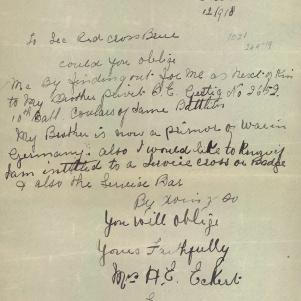 12/9/18
To Sec Red Cross Bure
could you oblige
Me By finding out for Me as Next of Kin
to My Brother Privet B.E. No 3652
10th Batt. of Same Battltn
My Brother is now a prisnor of War in
Germany. also I would like to Know if
I am intitled to a Service cross or Badge
& also the Service Bar
By doing so
You will oblige
Yours Faithfully
Mrs A.E. Eckert